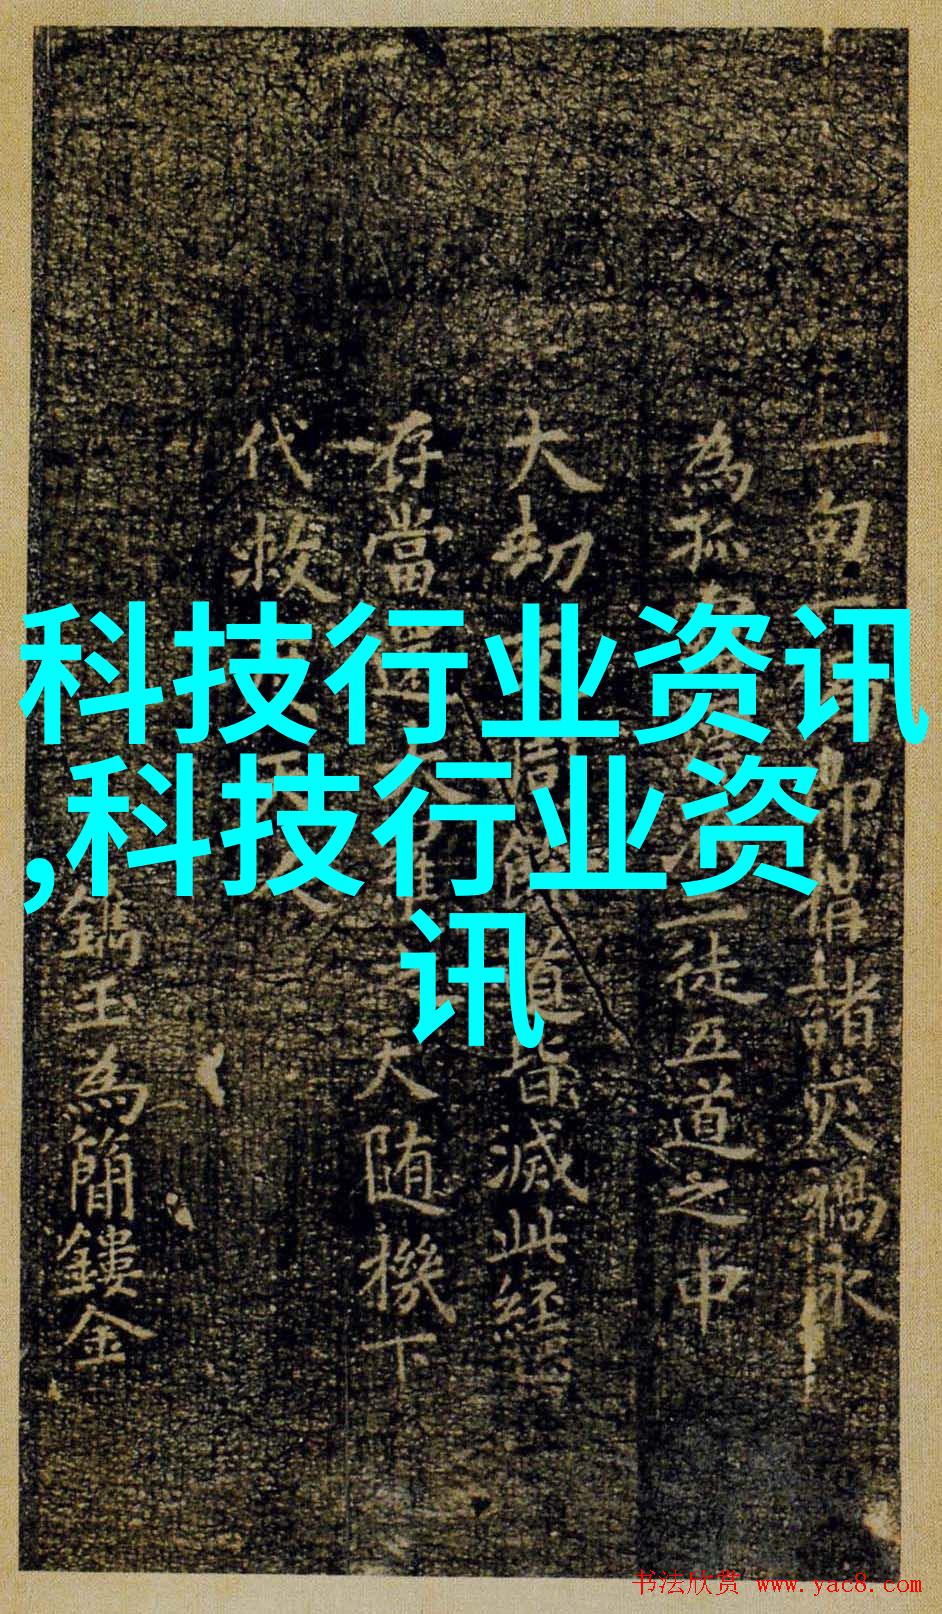 科技行业资讯
,科技行业资
讯
一句即諸災禍永
為孤徒五道之中
大劫道皆滅此經
存當還大羅天随機下
代救
鐫玉為簡鏤金
书法欣赏 www.yac8.com